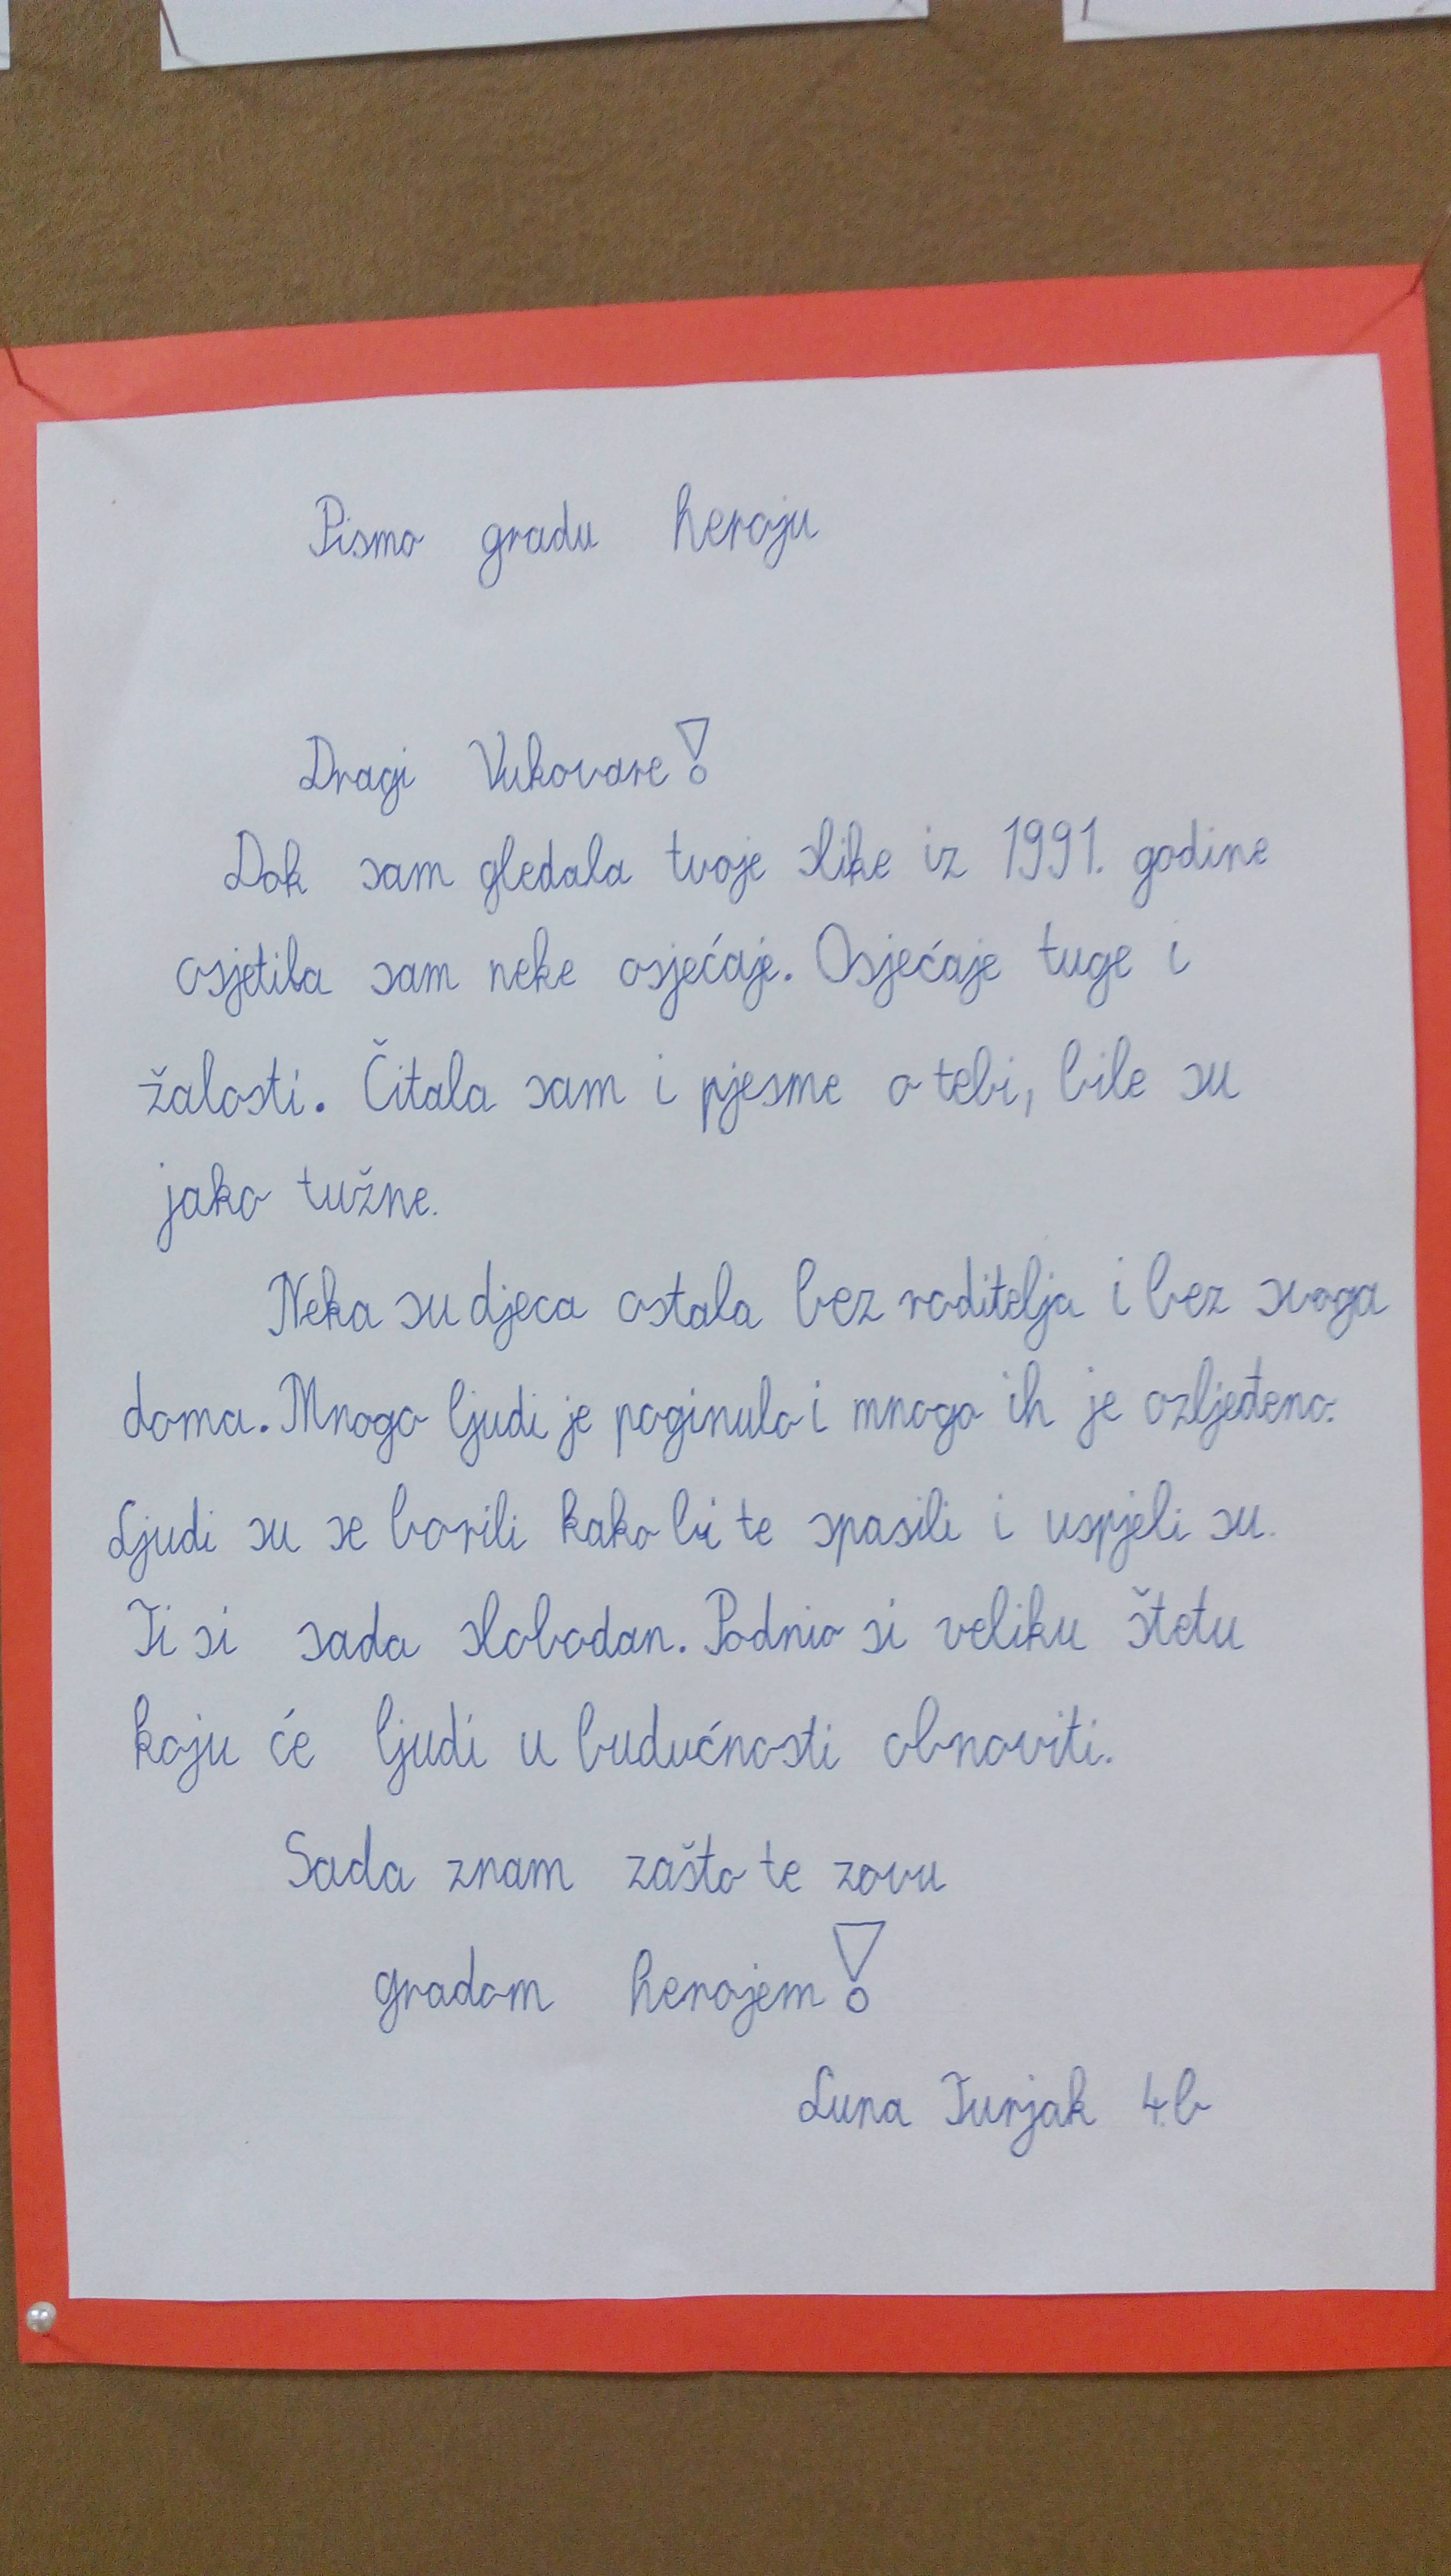 Pismo gradu heroju
Dragi Vukovare!
Dok sam gledala tvoje slike iz 1991. godine
osjetila sam neke osjećaje. Osjećaje tuge i
žalosti. Čitala sam i pjesme o tebi, bile su
jako tužne.
Neka su djeca ostala bez roditelja i bez svoga
doma. Mnogo ljudi je poginulo i mnogo ih je ozljeđeno.
Ljudi su se borili kako bi te spasili i uspjeli su.
Ti si sada slobodan. Podnio si veliku štetu
koju će ljudi u budućnosti obnoviti.
Sada znam zašto te zovu
gradom herojem!
Luna Jurjak 4.b